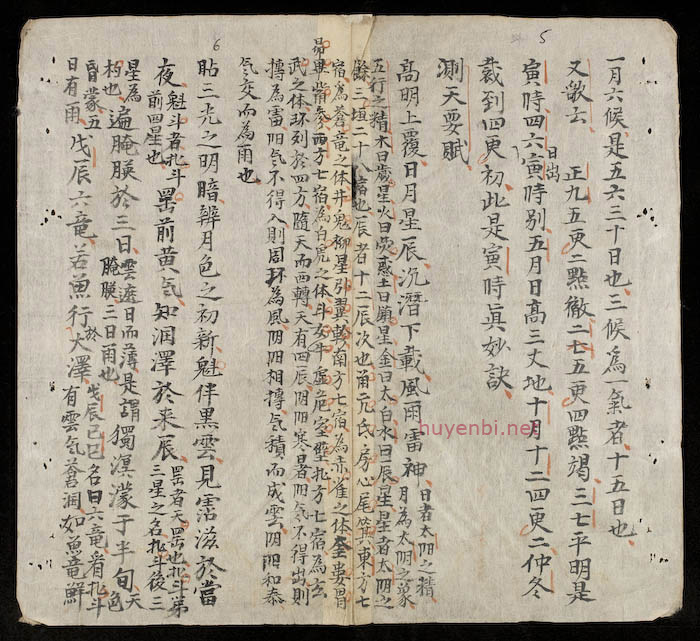 5
一月六候是五六三十日也三候為一氣者十五日也
又歌云 正九五更二點徹二七五更四點竭三七平明是
寅時四六日出寅時別五月日高三丈地十月十二四更二仲冬
到四更初此是寅時真妙訣
測天要賦
高明上覆日月星辰沉潛下載風雨雷神日者太阳之精月為太阴之象
五行之精木曰歲星火曰熒惑土曰鎮星金曰太白水曰辰星星者太阳之
餘三垣二十八宿也辰者十二辰次也角亢氐房心尾箕東方七
宿為蒼竜之体井鬼柳星張翼軫南方七宿為赤雀之体奎婁胃
6
昴畢觜參西方七宿為白虎之体斗女牛虛危室壁北方七宿為玄
武之体环列於四方隨天而西轉天有四辰阴阳寒者阳气不得出則
摶為雷阳气不得入則周环為風阴阳相摶气積而成雲阴阳和泰
气交而為雨也
占三光之明暗辨月色之初新魁伴黑雲見霑滋於當
夜魁斗者北斗前四星也罡前黄气知润澤於来辰罡者天罡也北斗弟三星之名北斗後三
星為杓也遍腌䁐於三日雲遮日而薄是謂腌䁐三日雨也獨溟濛于半旬天色
昏濛五日有雨戊辰六竜若魚行於大澤戊辰己巳名曰六竜看北斗有雲气蒼润如魚竜鮮
huyenbi.net